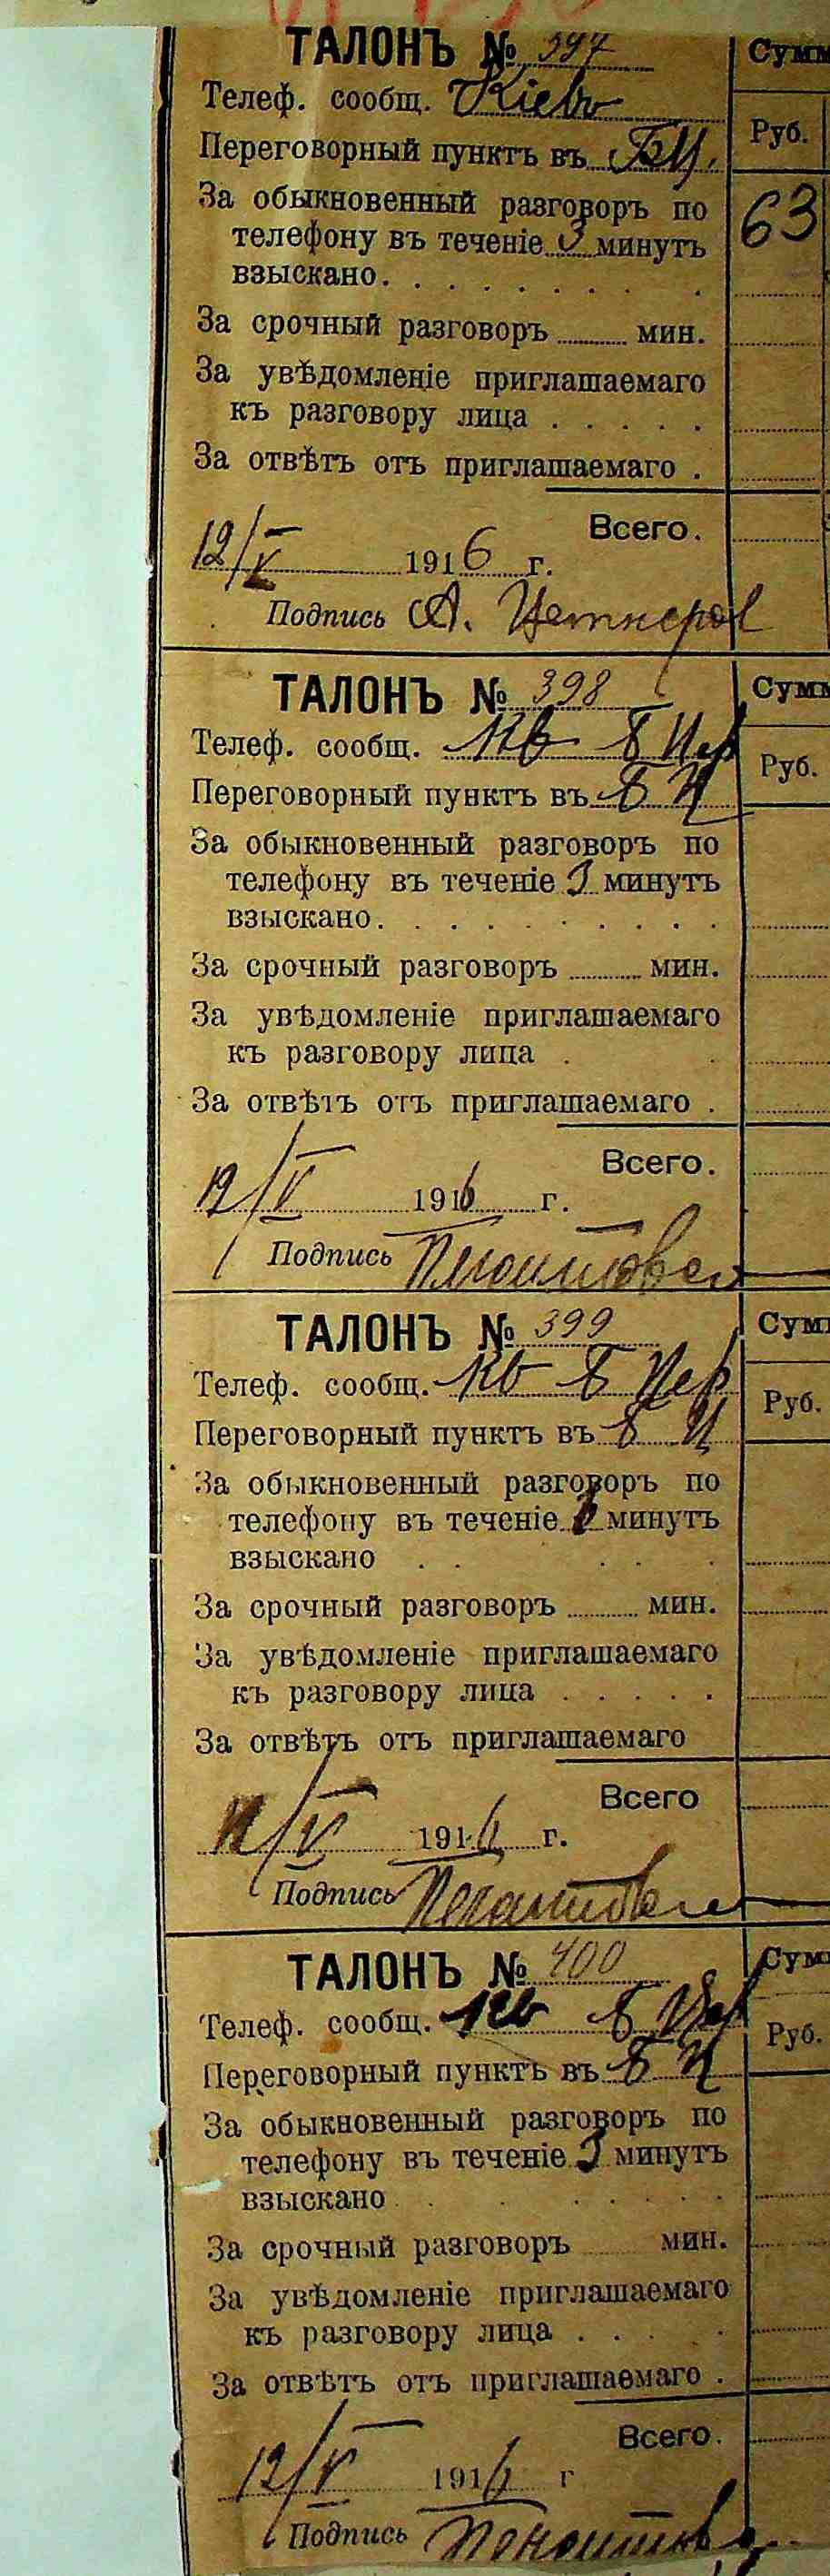 ТАЛОНЪ № 397
Сумм
Телеф. сообщ. Кіевъ
Руб.
Переговорный пунктъ въ БЦ.
За обыкновенный разговоръ по
63
телефону въ теченіе 3 минутъ
взыскано. . . . . . . . .
За срочный разговоръ мин.
За увѣдомленіе приглашаемаго
къ разговору лица . . . . .
За отвѣтъ отъ приглашаемаго .
Всего.
12/V 1916 г.
Подпись А.
ТАЛОНЪ № 398
Сумм
Телеф. сообщ. Кв Б Цер
Руб.
Переговорный пунктъ въ Б Ц
За обыкновенный разговоръ по
телефону въ теченіе 3 минутъ
взыскано. . . . . . . . . .
За срочный разговоръ мин.
За увѣдомленіе приглашаемаго
къ разговору лица . .
За отвѣтъ отъ приглашаемаго .
Всего.
12/V 1916 г.
Подпись
ТАЛОНЪ № 399
Сумм
Телеф. сообщ. Кв Б Цер
Руб.
Переговорный пунктъ въ Б Ц
За обыкновенный разговоръ по
телефону въ теченіе минутъ
взыскано . . . . .
За срочный разговоръ мин.
За увѣдомленіе приглашаемаго
къ разговору лица . . . . .
За отвѣтъ отъ приглашаемаго
Всего
12/V 1916 г.
Подпись
ТАЛОНЪ № 400
Сумм
Телеф. сообщ. Кв Б Цер
Руб.
Переговорный пунктъ въ Б Ц
За обыкновенный разговоръ по
телефону въ теченіе 3 минутъ
взыскано . . . . . . . .
За срочный разговоръ мин.
За увѣдомленіе приглашаемаго
къ разговору лица . . . . .
За отвѣтъ отъ приглашаемаго .
Всего.
12/V 1916 г
Подпись